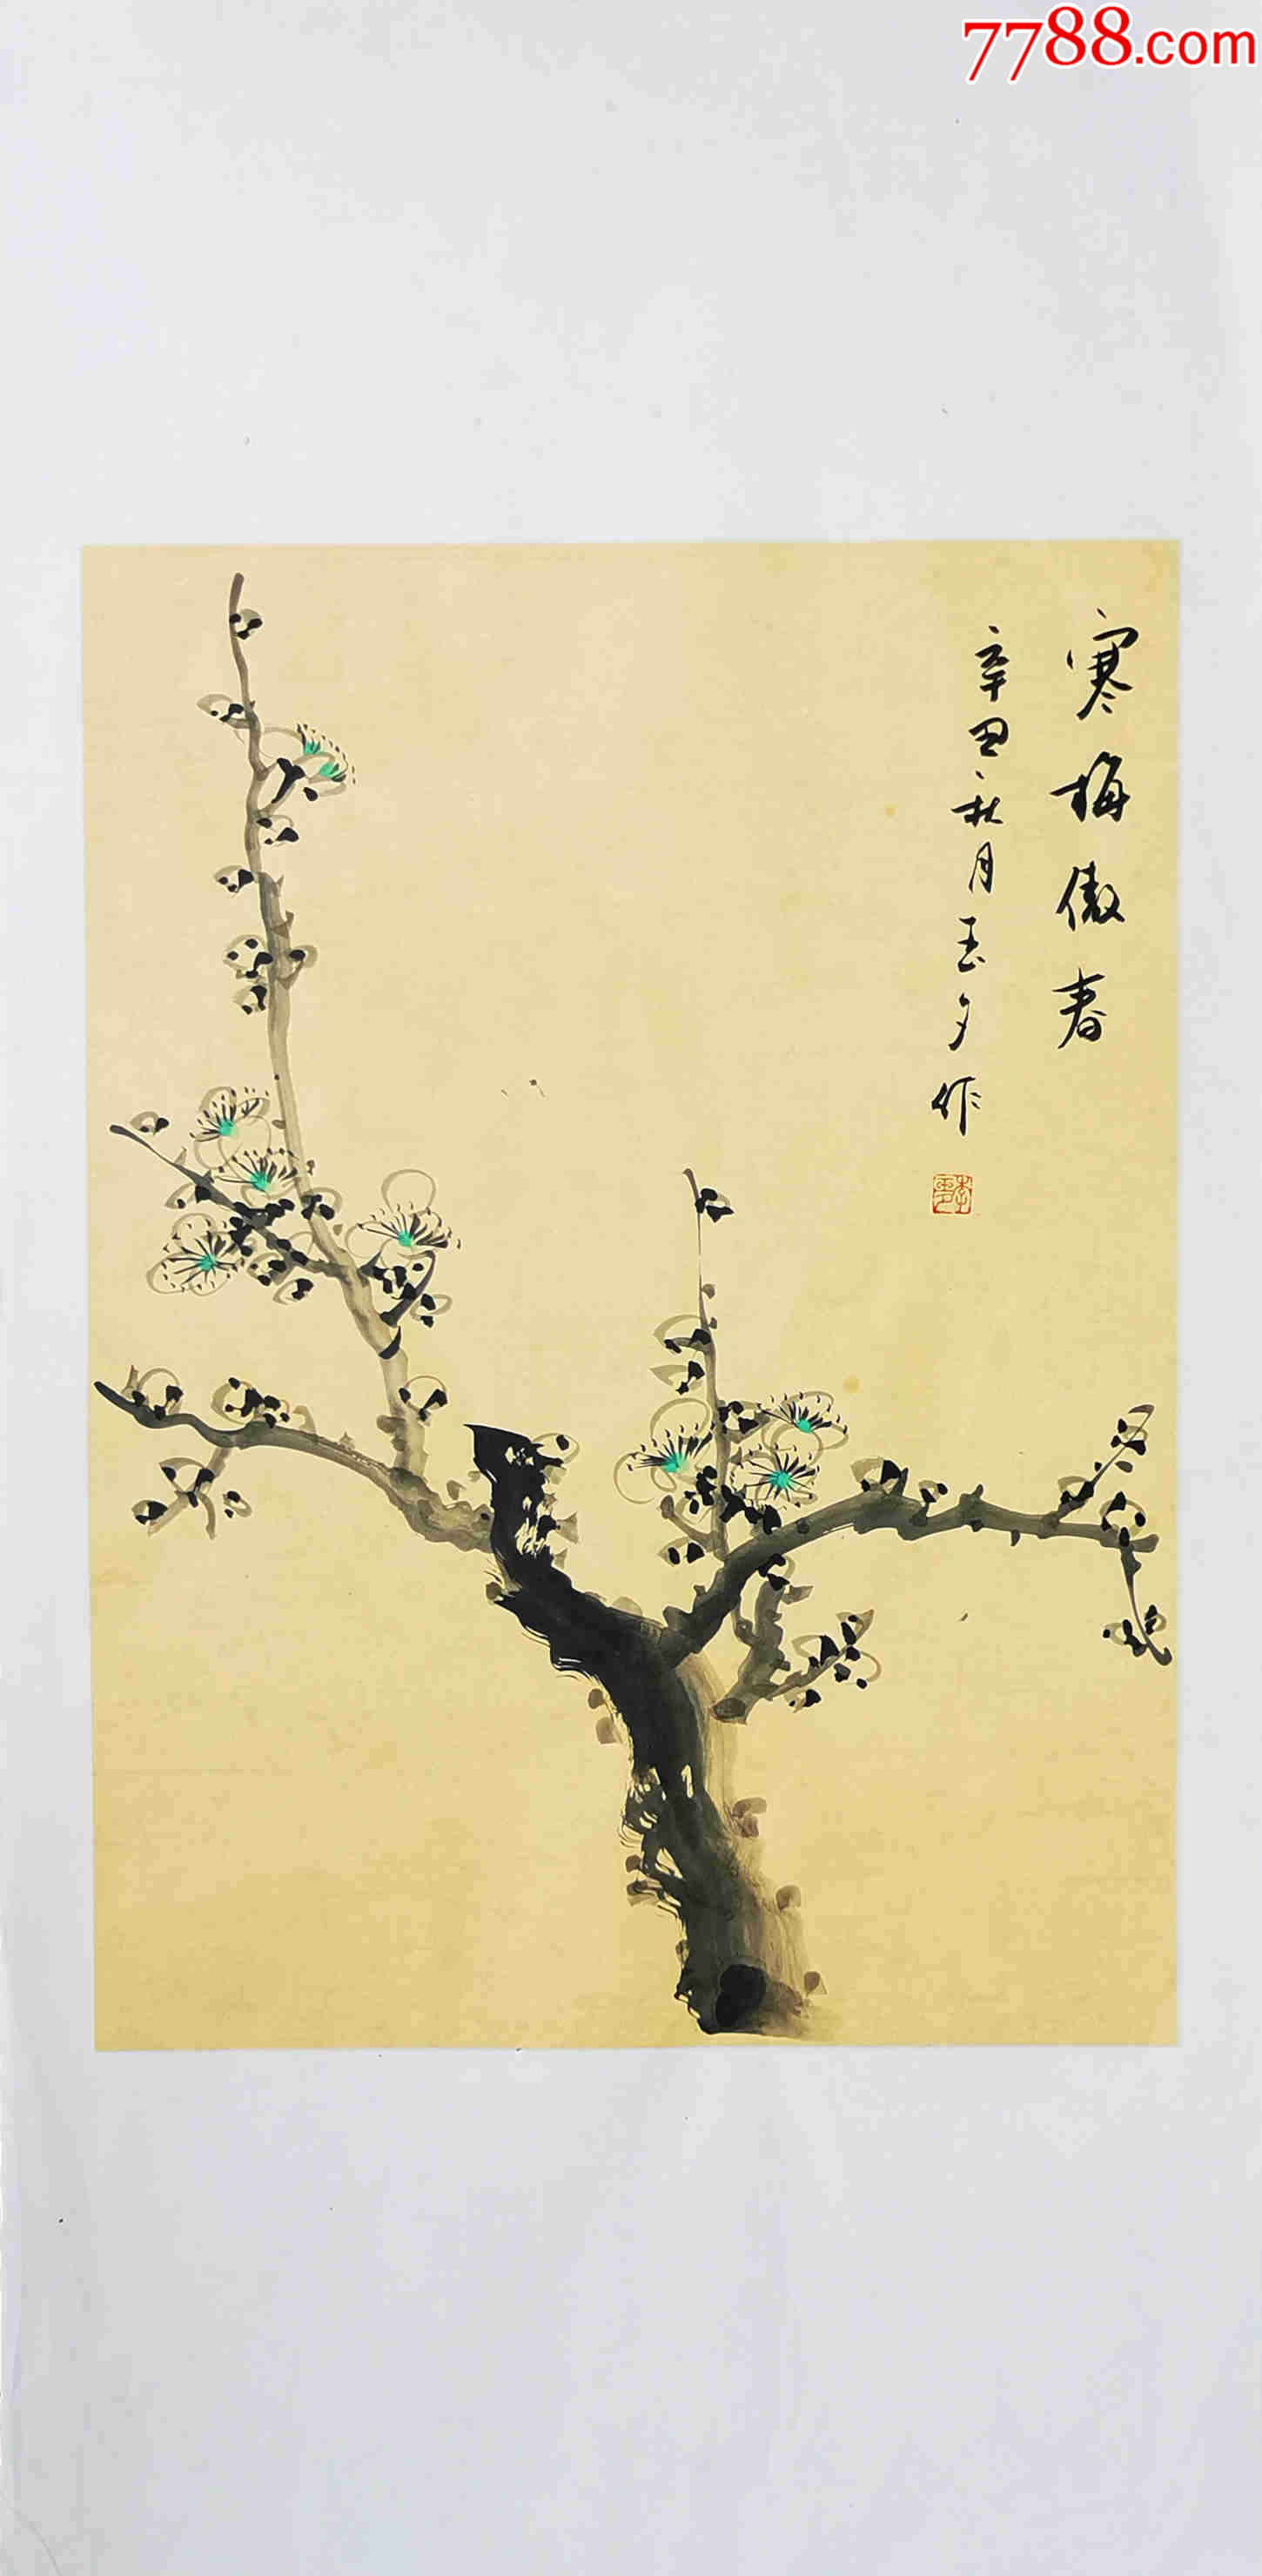 7788.com
寒梅傲春
辛丑秋月玉夕作